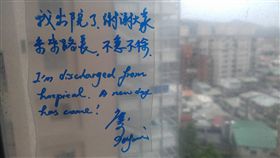 我出院了,謝謝大家
未來路長,不急不徐。
I'm discharged from
hospical. A new day
has come!